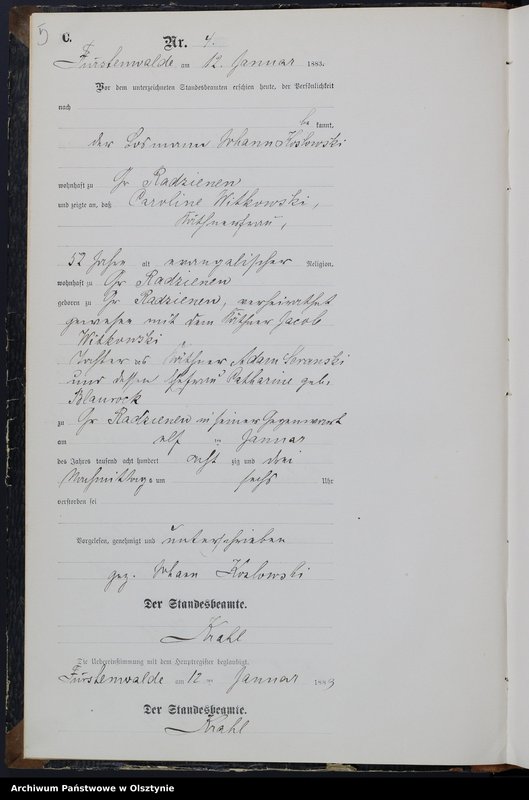 5
C.
Nr. 4.
Fürstenwalde am 12. Januar 1883.
Vor dem unterzeichneten Standesbeamten erschien heute, der Persönlichkeit
nach
be kannt,
der Losmann Johann Koslowski
wohnhaft zu Gr Radzienen
und zeigte an, daß Caroline Witkowski,
Käthnerfrau,
52 Jahre alt evangelischer Religion,
wohnhaft zu Gr Radzienen
geboren zu Gr Radzienen, verheirathet
gewesen mit dem Käthner Jacob
Witkowski
Tochter des Käthner Adam
und dessen Ehefrau Katharine geb.
Blaurock
zu Gr Radzienen in seiner Gegenwart
am elf ten Januar
des Jahres tausend acht hundert acht zig und drei
Nachmittags um sechs Uhr
verstorben sei
Vorgelesen, genehmigt und unterschrieben
gez. Johann Koslowski
Der Standesbeamte.
Krahl
Die Uebereinstimmung mit dem Hauptregister beglaubigt.
Fürstenwalde am 12 ten Januar 1883
Der Standesbeamte.
Krahl
Archiwum Państwowe w Olsztynie